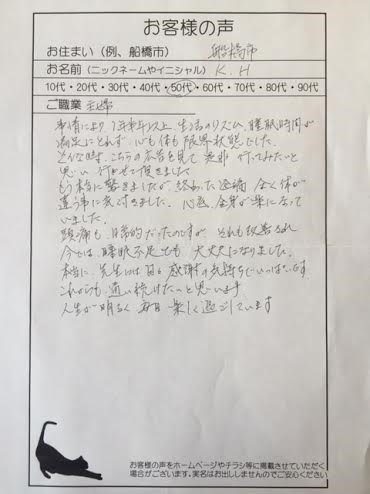 お客様の声
お住まい（例、船橋市） 船橋市
お名前（ニックネームやイニシャル） K.H
10代・20代・30代・40代・50代・60代・70代・80代・90代
ご職業 主婦
事情により1年半以上、生活のリズム、睡眠時間が
満足にとれず、心も体も限界状態でした。
そんな時、こちらの広告を見て是非行ってみたいと
思い行かせて頂きました
もう本当に驚きましたが、終わった途端全く体が
違う事に気付きました。心臓、全身が楽になって
いました。
頭痛も、日常的だったのですが、それも改善され
今では、睡眠不足でも大丈夫になりました。
本当に、先生には日々感謝の気持ちでいっぱいです
これからも、通い続けたいと思います
人生が明るく毎日楽しく過ごしています
お客様の声をホームページやチラシ等に掲載させていただく
場合がございます。実名はお出ししませんのでご安心ください